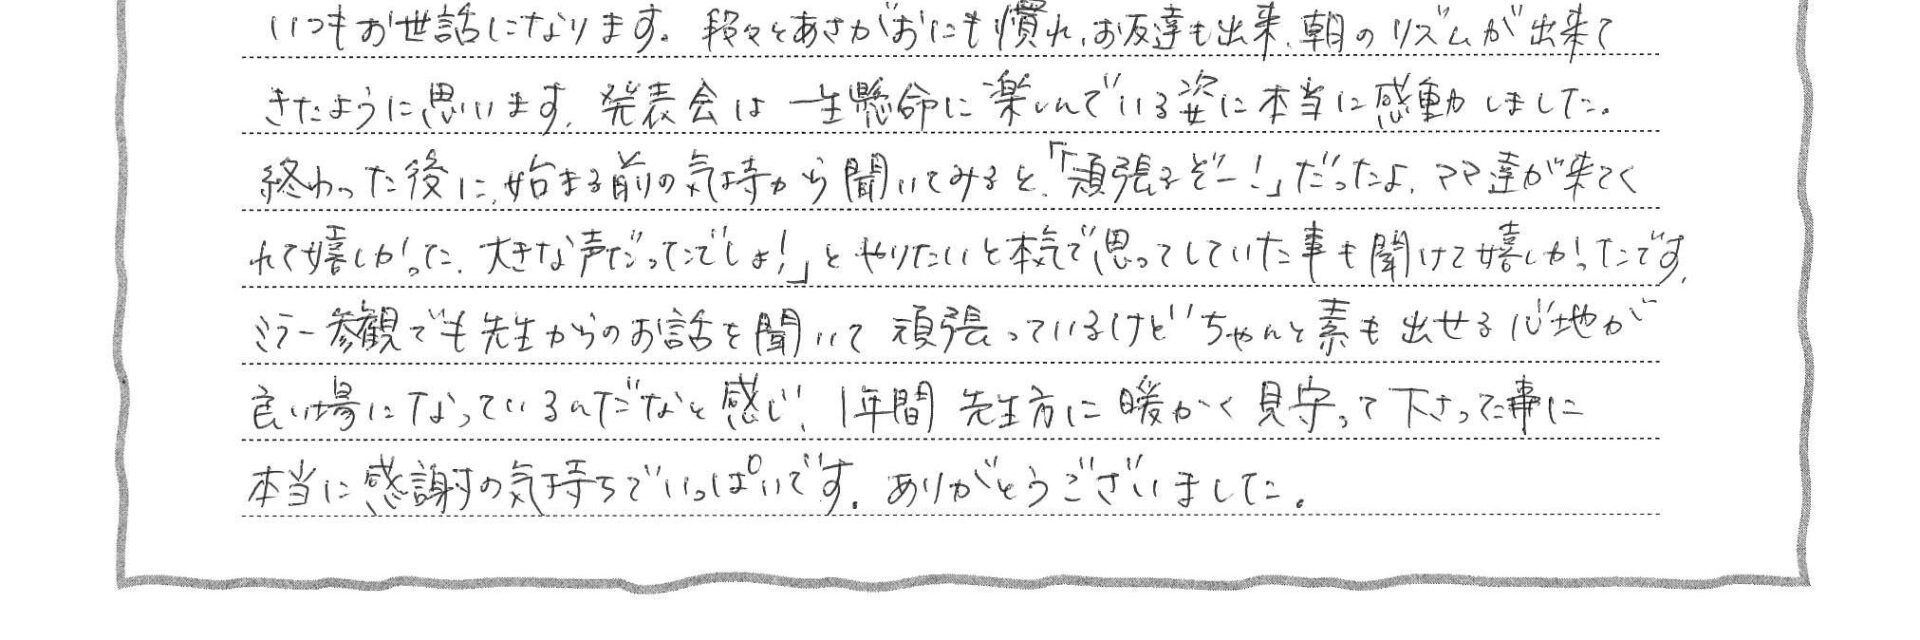 いつもお世話になります。段々とあさがおにも慣れ、お友達も出来、朝のリズムが出来て
きたように思います。発表会は一生懸命に楽しんでいる姿に本当に感動しました。
終わった後に、始まる前の気持から聞いてみると、「頑張るぞー！」だったよ、ママ達が来てく
れて嬉しかった、大きな声だったでしょ！」とやりたいと本気で思ってしていた事も聞けて嬉しかったです。
ミラー参観でも先生からのお話を聞いて頑張っているけどちゃんと素も出せる心地が
良い場になっているんだなと感じ、1年間先生方に暖かく見守って下さった事に
本当に感謝の気持ちでいっぱいです。ありがとうございました。